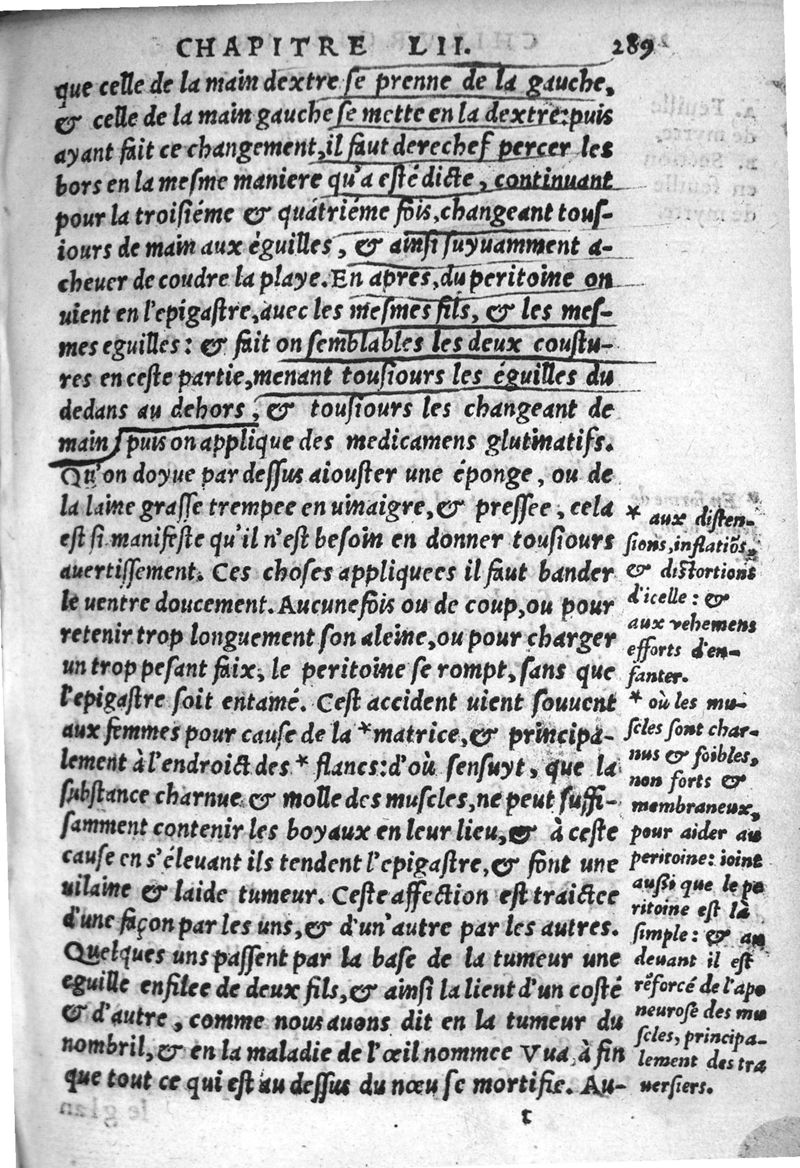 CHAPITRE LII. 289
que celle de la main dextre se prenne de la gauche,
& celle de la main gauche se mette en la dextre: puis
ayant fait ce changement, il faut derechef percer les
bors en la mesme maniere qu'a esté dicte, continuant
pour la troisiéme & quatriéme fois, changeant tous-
iours de main aux éguilles, & ainsi suyuamment a-
cheuer de coudre la playe. En apres, du peritoine on
uient en l'epigastre, auec les mesmes fils, & les mes-
mes eguilles: & fait on semblables les deux coustu-
res en ceste partie, menant tousiours les éguilles du
dedans au dehors, & tousiours les changeant de
main, puis on applique des medicamens glutinatifs.
Qu'on doyue par dessus aiouster une éponge, ou de
la laine grasse trempee en uinaigre, & pressee, cela
est si manifeste qu'il n'est besoin en donner tousiours
auertissement. Ces choses appliquees il faut bander
le uentre doucement. Aucunefois ou de coup, ou pour
retenir trop longuement son aleine, ou pour charger
un trop pesant faix, le peritoine se rompt, sans que
l'epigastre soit entamé. Cest accident uient souuent
aux femmes pour cause de la *matrice, & principa-
lement à l'endroict des * flancs: d'où sensuyt, que la
substance charnue & molle des muscles, ne peut suffi-
samment contenir les boyaux en leur lieu, & à ceste
cause en s'éleuant ils tendent l'epigastre, & font une
uilaine & laide tumeur. Ceste affection est traictee
d'une façon par les uns, & d'un'autre par les autres.
Quelques uns passent par la base de la tumeur une
eguille enfilee de deux fils, & ainsi la lient d'un costé
& d'autre, comme nous auons dit en la tumeur du
nombril, & en la maladie de l'œil nommee Vua, à fin
que tout ce qui est au dessus du nœu se mortifie. Au-
t
* aux disten-
sions, inflatiõs,
& distortions
d'icelle: &
aux vehemens
efforts d'en-
fanter.
* où les mu-
scles sont char-
nus & foibles,
non forts &
membraneux,
pour aider au
peritoine: ioint
aussi que le pe
ritoine est là
simple: & au
deuant il est
rẽforcé de l'apo
neurose des mu
scles, principa-
lement des tra
uersiers.